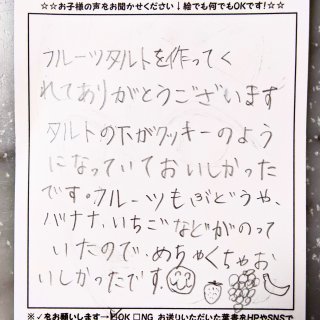 ☆☆お子様の声をお聞かせください↓絵でも何でもOKです!☆☆
フルーツタルトを作ってく
れてありがとうございます
タルトの下がクッキーのよう
になっていておいしかった
です。フルーツもぶどうや、
バナナ、いちごなどがのって
いたので、めちゃくちゃお
いしかったです。
※✓をお願いします→☑OK □NG お送りいただいた葉書をHPやSNSで